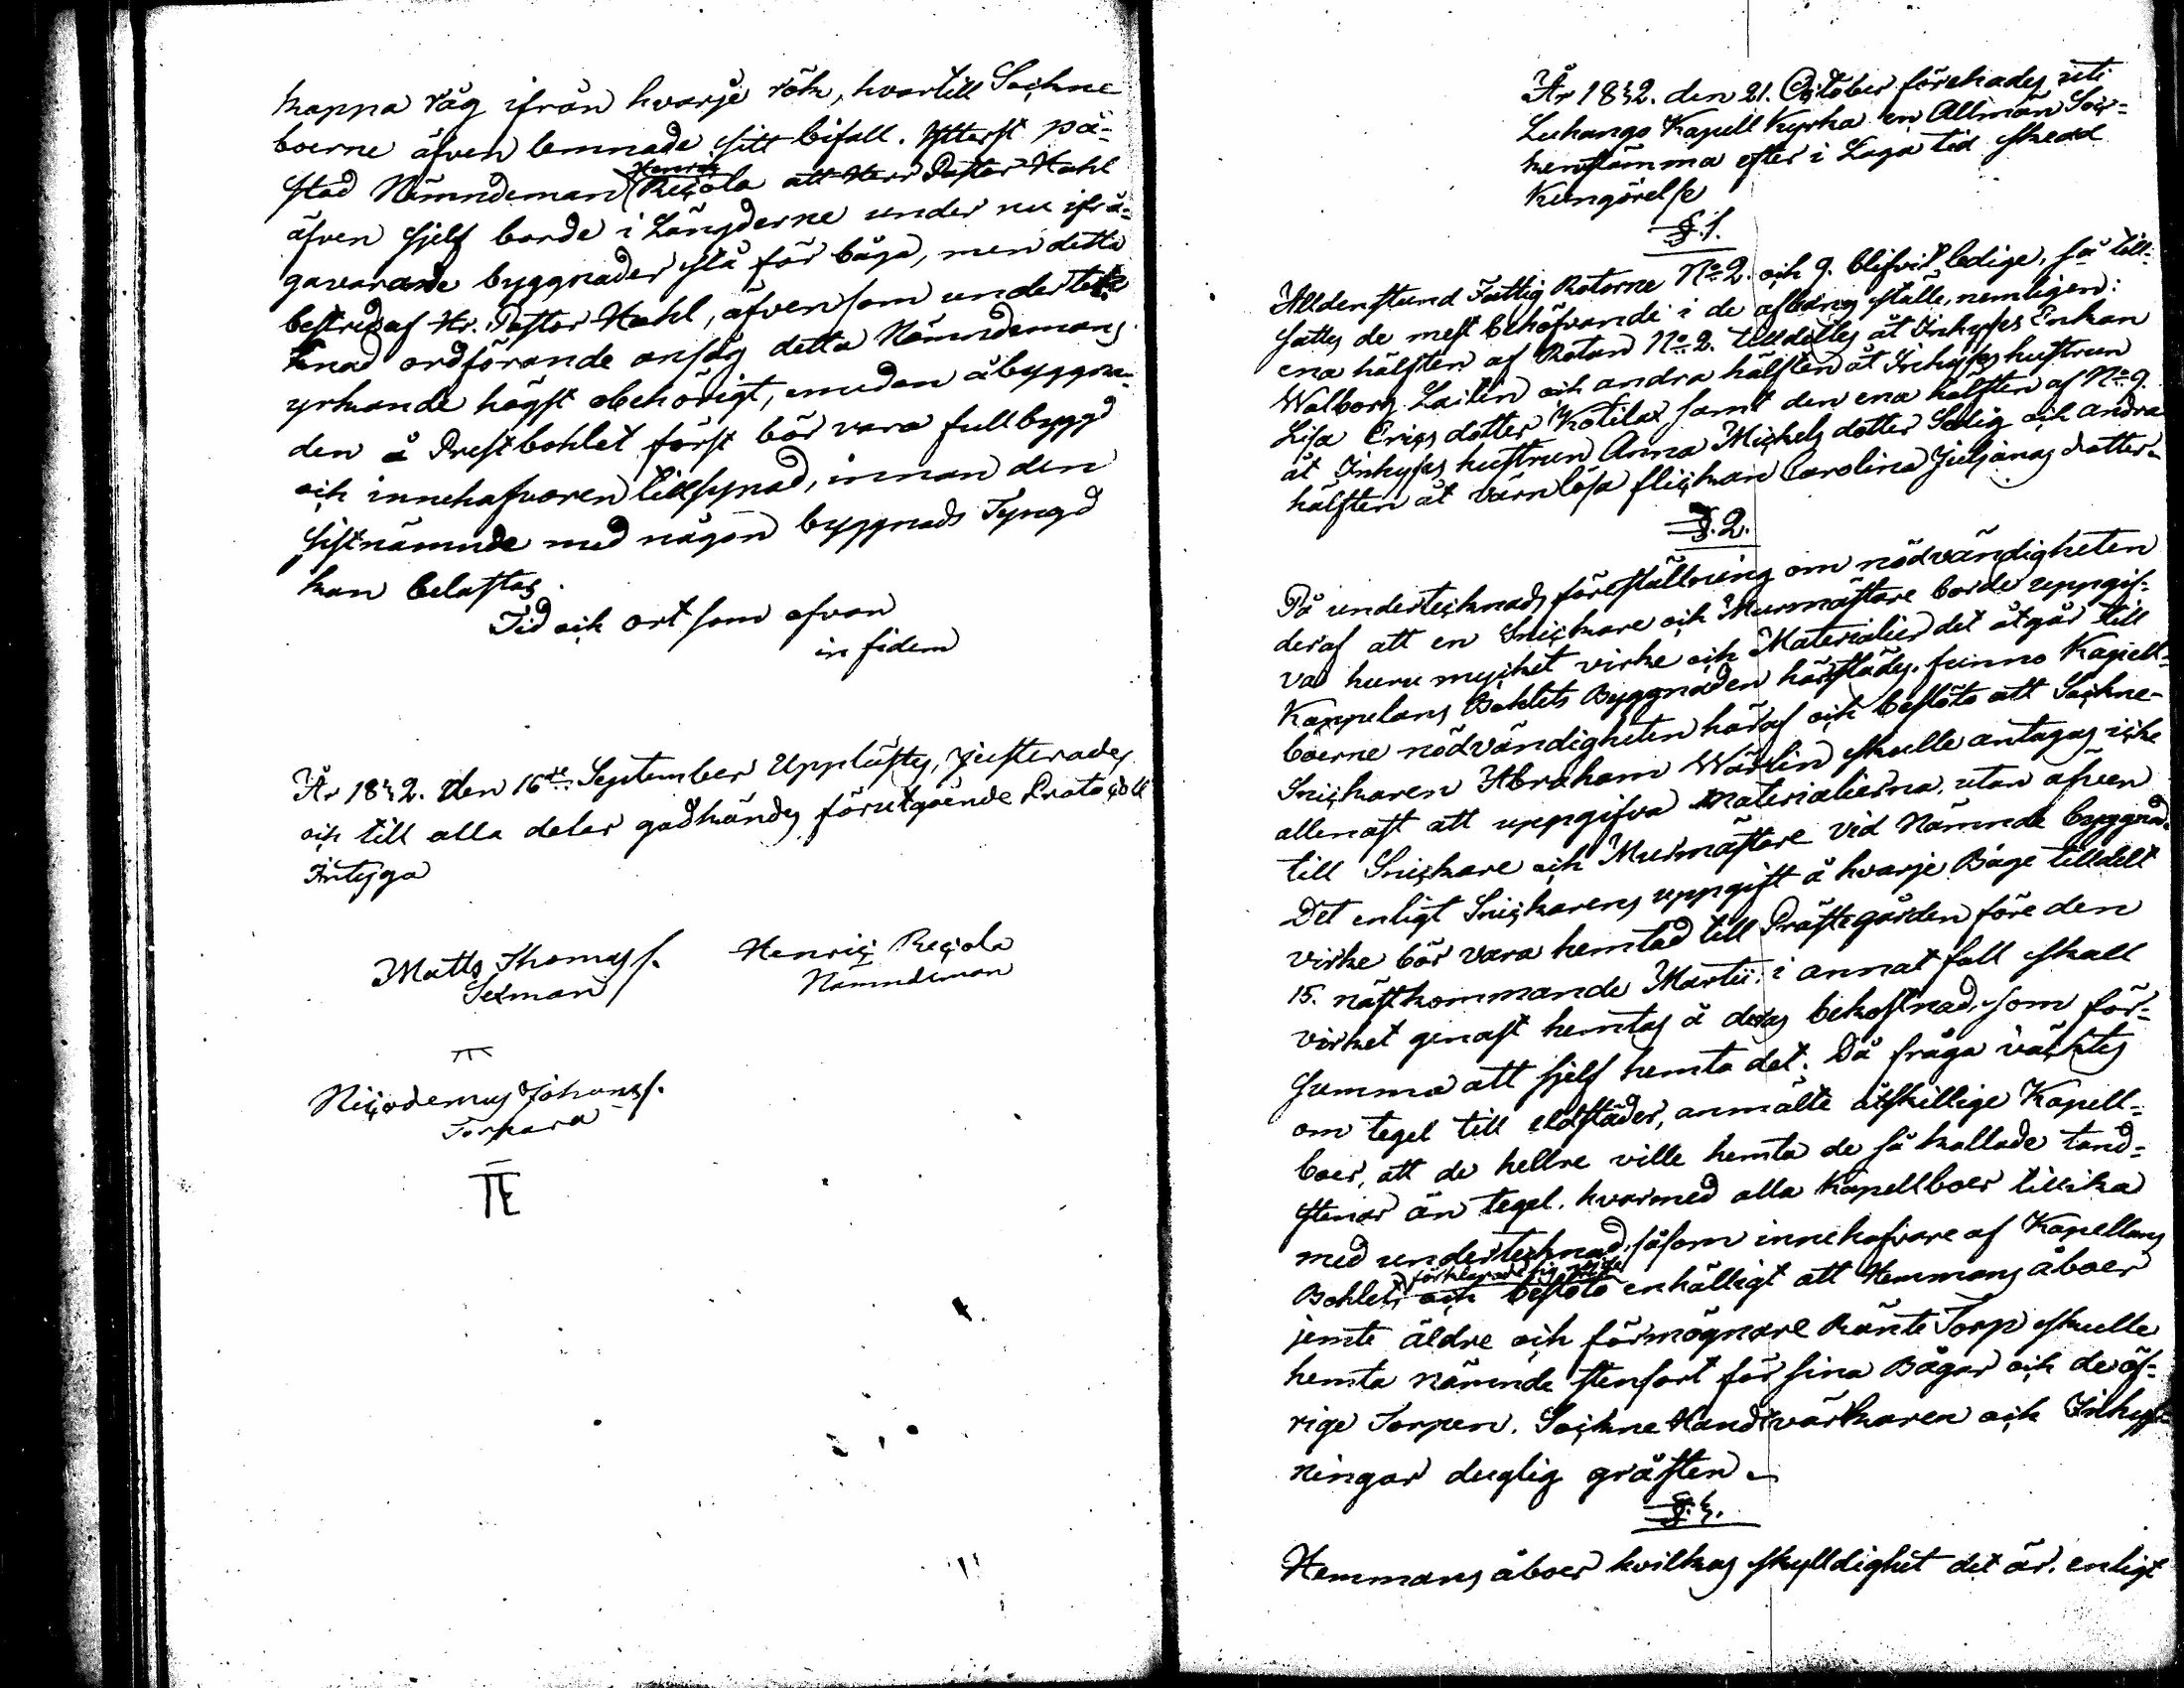 kappa råg ifrån hvarje rök, hvartill Sockne
boerne äfven lemnade sitt bifall. Ytterst på-
stod Nämndeman Henric Reçola att Herr Pastor Hahl
äfven sjelf borde i Längderne under nu ifrå-
gavarande byggnader stå för båga, men detta
bestreds af Hr. Pastor Hahl, äfvensom underteck-
nad ordförande ansåg detta Nämndemans
yrkande högst obehörigt, emedan åbyggna-
den å Prestbohlet först bör vara fullbygd
och innehafvaren tillsynad, innan den
sistnämnde med någon byggnads Tyngd
kan belastas.
Tid och ort som ofvan
in fidem
År 1842. den 16de September Upplästes, justerades
och till alla delar godkändes förutgående Protocoll
Intyga
Matts Thomass. Henric Reçola
Sexman Nämndeman
Nicodemus Johanss.
Torpara
TE
År 1842. den 21. October förehades uti
Luhango Kapell Kyrka en Allmän Soc-
kenstämma efter i Laga tid skedd
Kungörelse
§.1.
Alldenstund Fattig Rotorne No 2. och 9. blifvit ledige, så till-
sattes de mest behöfvande i de aflidnes ställe, nemligen:
ena hälften af Rotan No 2. tilldeltes åt Inhyses Enkan
Walborg Laitin och andra hälften åt Inhyses hustrun
Lisa Erics dotter Kotilax samt den ena hälften af No 9.
åt Inhyses hustrun Anna Michels dotter Selig och andra
hälften åt värnlösa flickan Carolina Julianas dotter
§.2.
På undertecknads föreställning om nödvändigheten
deraf att en Snickare och Murmästare borde uppgif-
va huru mycket virke och Materialier det åtgår till
Kappelans Bohlets Byggnaden härstädes, funno Kapell-
boerne nödvändigheten häraf och beslöto att Sockne-
Snickaren Abraham Wärlin skulle antagas icke
allenast att uppgifva materialierna, utan äfven
till Snickare och Murmästare vid Nämnde byggnad.
Det enligt Snickarens uppgift å hvarje Båge tilldelt
virke bör vara hemtad till Prästegården före den
15. nästkommande Martii; i annat fall skall
virket genast hemtas å deras bekostnad, som för-
summa att sjelf hemta det. Då fråga väcktes
om tegel till eldstäder, anmälte åtskillige Kapell-
boer, att de hellre ville hemta de så kallade tand-
stenar än tegel. hvarmed alla Kapellboer tillika
med undertecknad, såsom innehafvare af Kapellans
Bohlet, förklarade sig nöjde och beslöto enhälligt att Hemmans åboer
jemte äldre och förmögnare Ränte Torp skulle
hemta nämnde stensort för sina Bågar och de öf-
rige Torpen, Sockne Handtvärkaren och Inhys-
ningar duglig gråsten
§.3.
Hemmans åboer hvilkas skylldighet det är, enligt